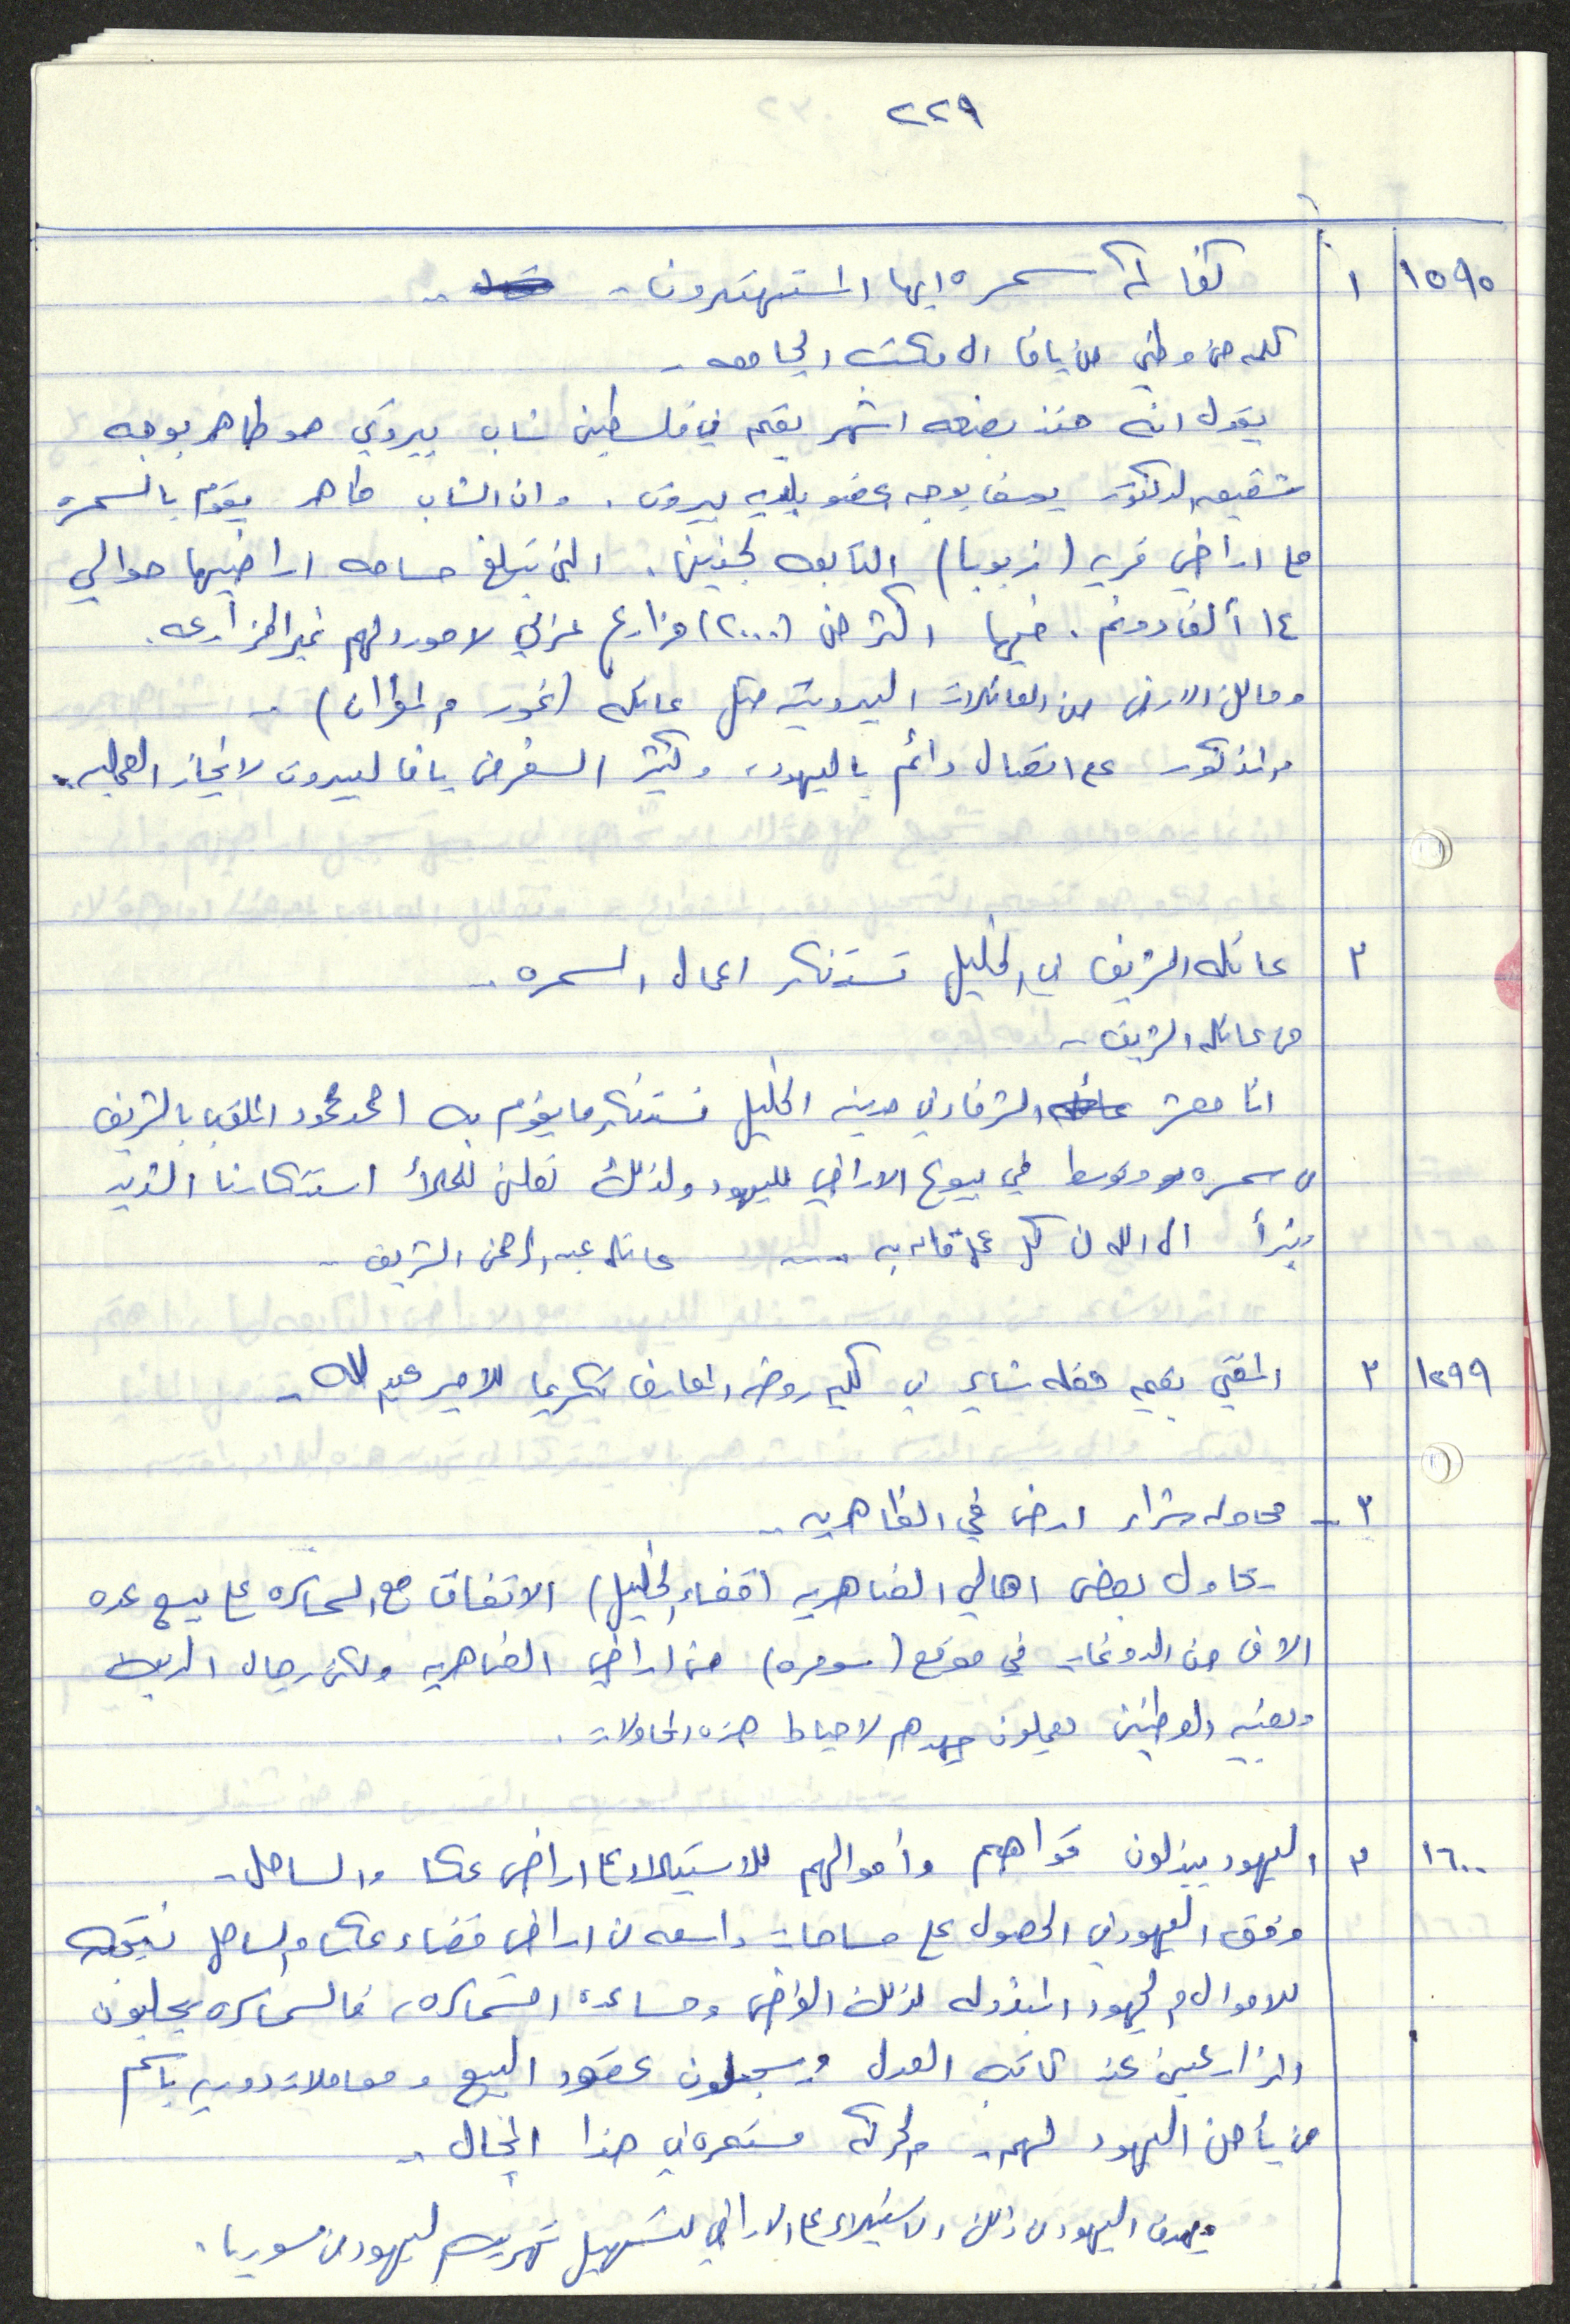 ٢٢٩
١٥٩٥ ١ كفاكم سمسره ايها المستهترون..
كلمه من وطني من يافا الى مكتب الجامعه..
يقول انه منذ بضعه اشهر يقيم في فلسطين شاب بيروتي هو طاهر بوجه
شقيقه الدكتور يوسف بوجه عضو بلديه بيروت. وان الشاب طاهر يقوم بالسمسره
على اراضي قريه (زبوبا) التابعه لجنين. التي تبلغ مساحه اراضيها حوالي
١٤ ألف دونم. فيها اكثر من (٢٠٠٠) مزارع عربي لا مورد لهم غير المزارعه.
ومالك الارض من العائلات البيروتيه مثل عائله (غور والمطران)..
والمذكور على اتصال دائم باليهود، وكثير السفر من يافا لبيروت لانجاز العمليه.
٢ عائله الشريف في الخليل تستنكر اعمال السمسره..
من عائله الشريف..
انا معشر الشرفا في مدينه الخليل نستنكر ما يقوم به احمد محمود الملقب بالشريف
من سمسره وتوسط في بيوع الاراضي لليهود ولذلك نعلن للملأ استنكارنا الشديد
ونبرأ الى الله من كل عمل قام به .... عائله عبد الرحمن الشريف..
١٥٩٩ ٢ المفتي يقيم حفله شاي في كليه روضه المعارف تكريما للامير عبد الله..
٣ - محاوله شراء ارض في الظاهريه..
يحاول بعض اهالي الضاهريه (قضاء الخليل) الاتفاق مع السماسره على بيع عده
الاف من الدونمات في موقع (سومره) من اراضي الضاهريه ولكن رجال الدين
وبقيه الوطنيين يعملون جهدهم لاحباط هذه المحاولات.
١٦٠٠ ٣ اليهود يبذلون قواهم وأموالهم للاستيلاء على اراضي عكا والساحل..
وفق اليهود في الحصول على مساحات واسعه من اراضي قضاء عكا والساحل نتيجه
للاموال والجهود المبذوله لذلك الغرض ومساعده السماسره، فالسماسره يجلبون
المزارعين عند كاتب العدل ويسجلون عقود البيع ومعاملات دوريه باسم
من يأمن اليهود لهم.. والحركه مستمره في هذا المجال..
ويهدف اليهود من ذلك الاستيلاء على الاراضي لتسهيل تهريب اليهود من سوريا.